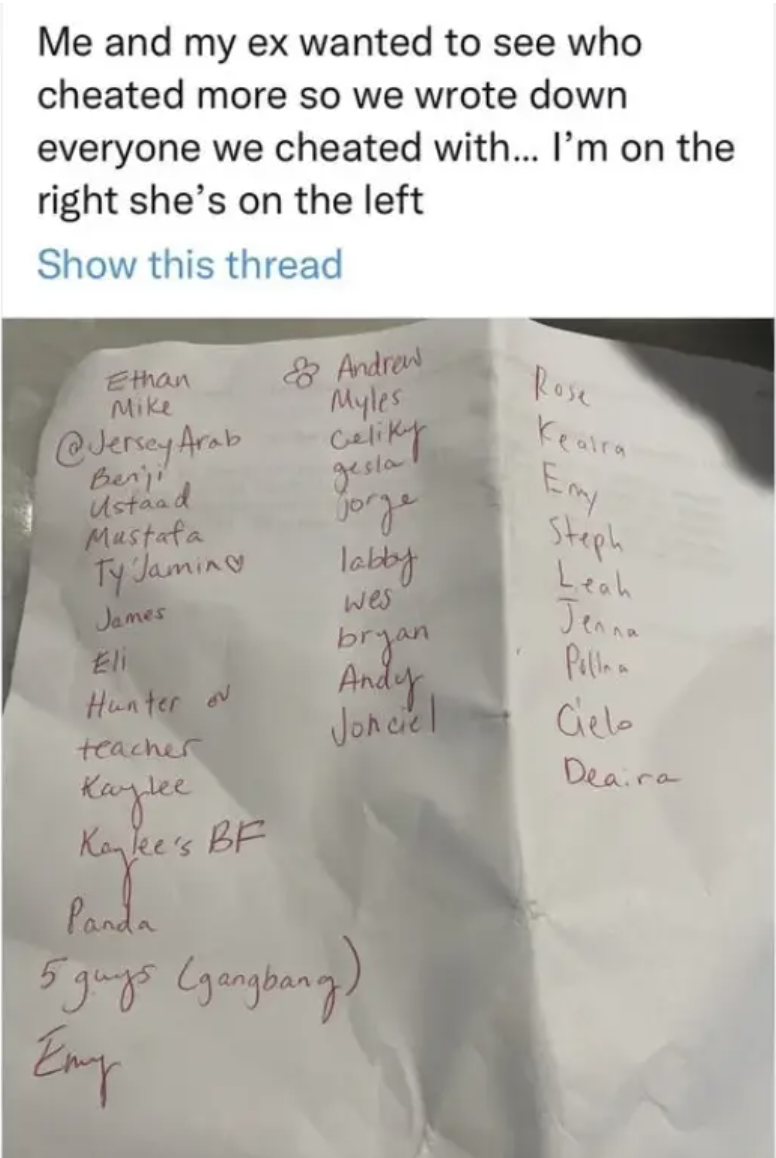 Me and my ex wanted to see who
cheated more so we wrote down
everyone we cheated with... I'm on the
right she's on the left
Show this thread
Ethan
Mike
@JerseyArab
Benji
Ustaad
Mustafa
Ty'Jamin♡
James
Eli
Hunter
teacher
Kaylee
Kaylee's BF
Panda
5 guys (gangbang)
Emy
Andrew
Myles
Celiky
gesla
jorge
labby
wes
bryan
Andy
Johciel
Rose
Keaira
Emy
Steph
Leah
Jenna
Cielo
Deaira